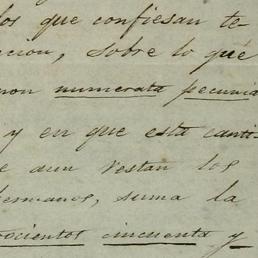 los que confiesan te-
cion, sobre lo que
non numerata pecunia
y en que esta canti-
e aun restan los
hermanos, suma la
ocientos cincuenta y